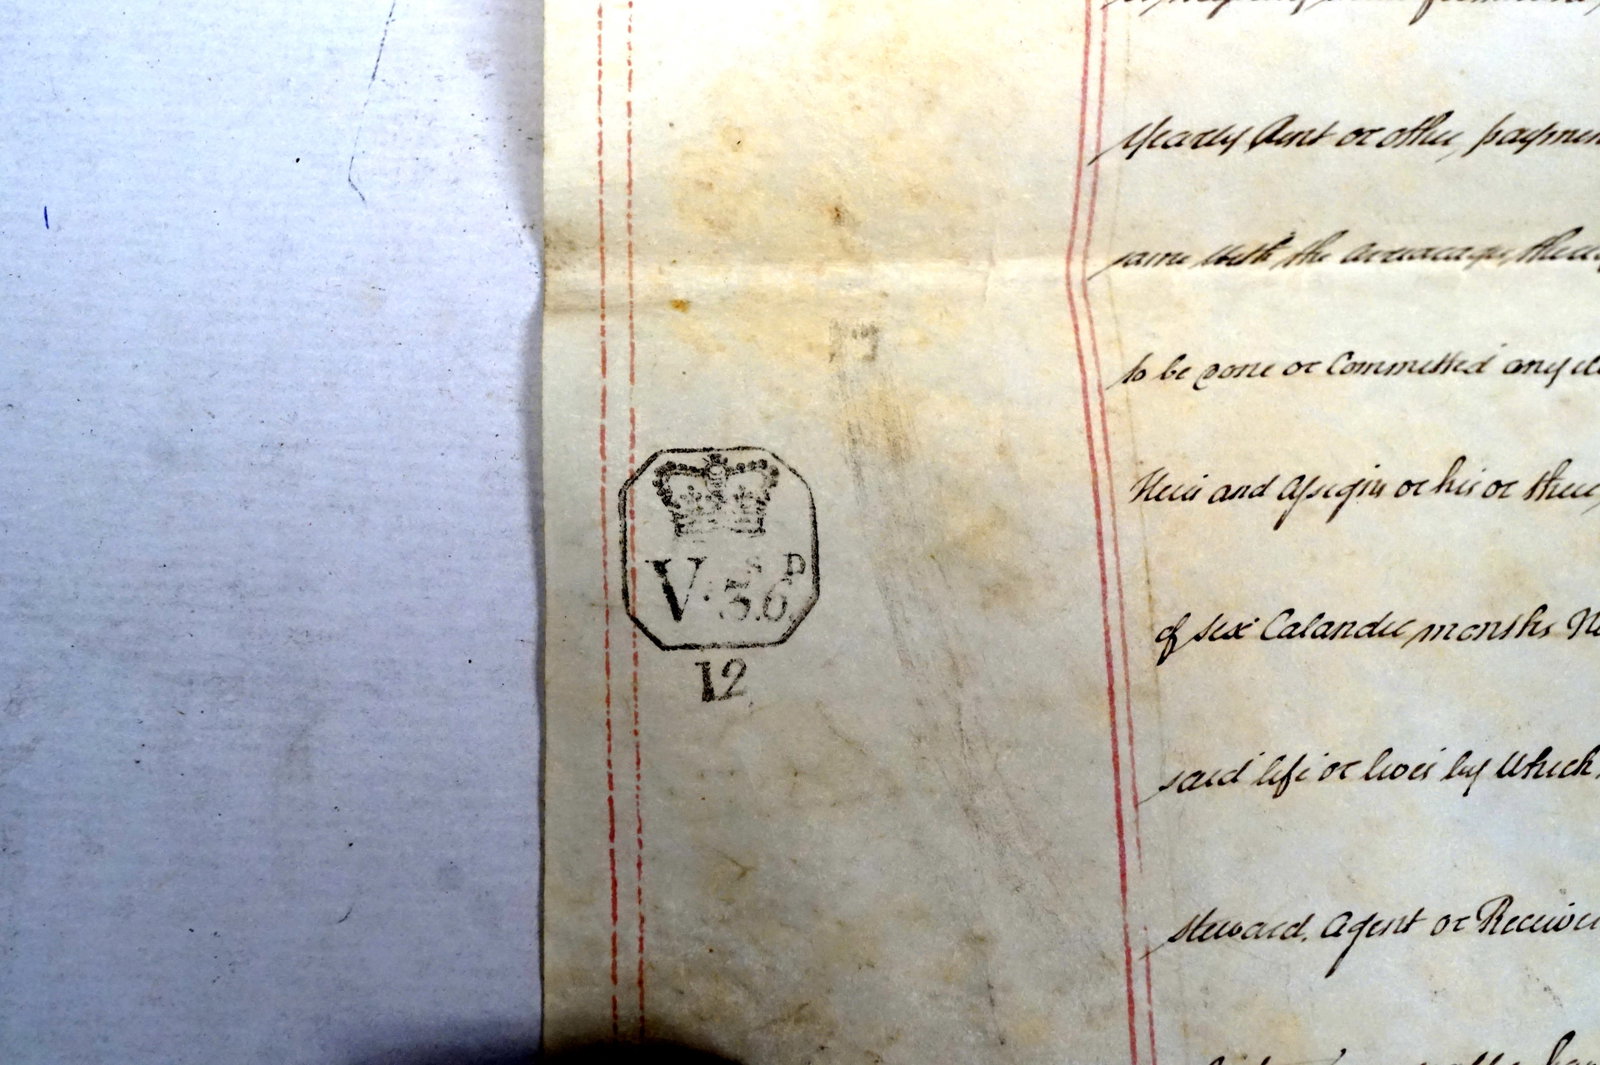 Yearly Rent or other paymen
same With the Arrearages
to be done or Committed any
Heirs and Assigns or his or their
V. 3.6
S D
12
of six Calander months
said life or lives by Which
Steward, Agent or Receiver